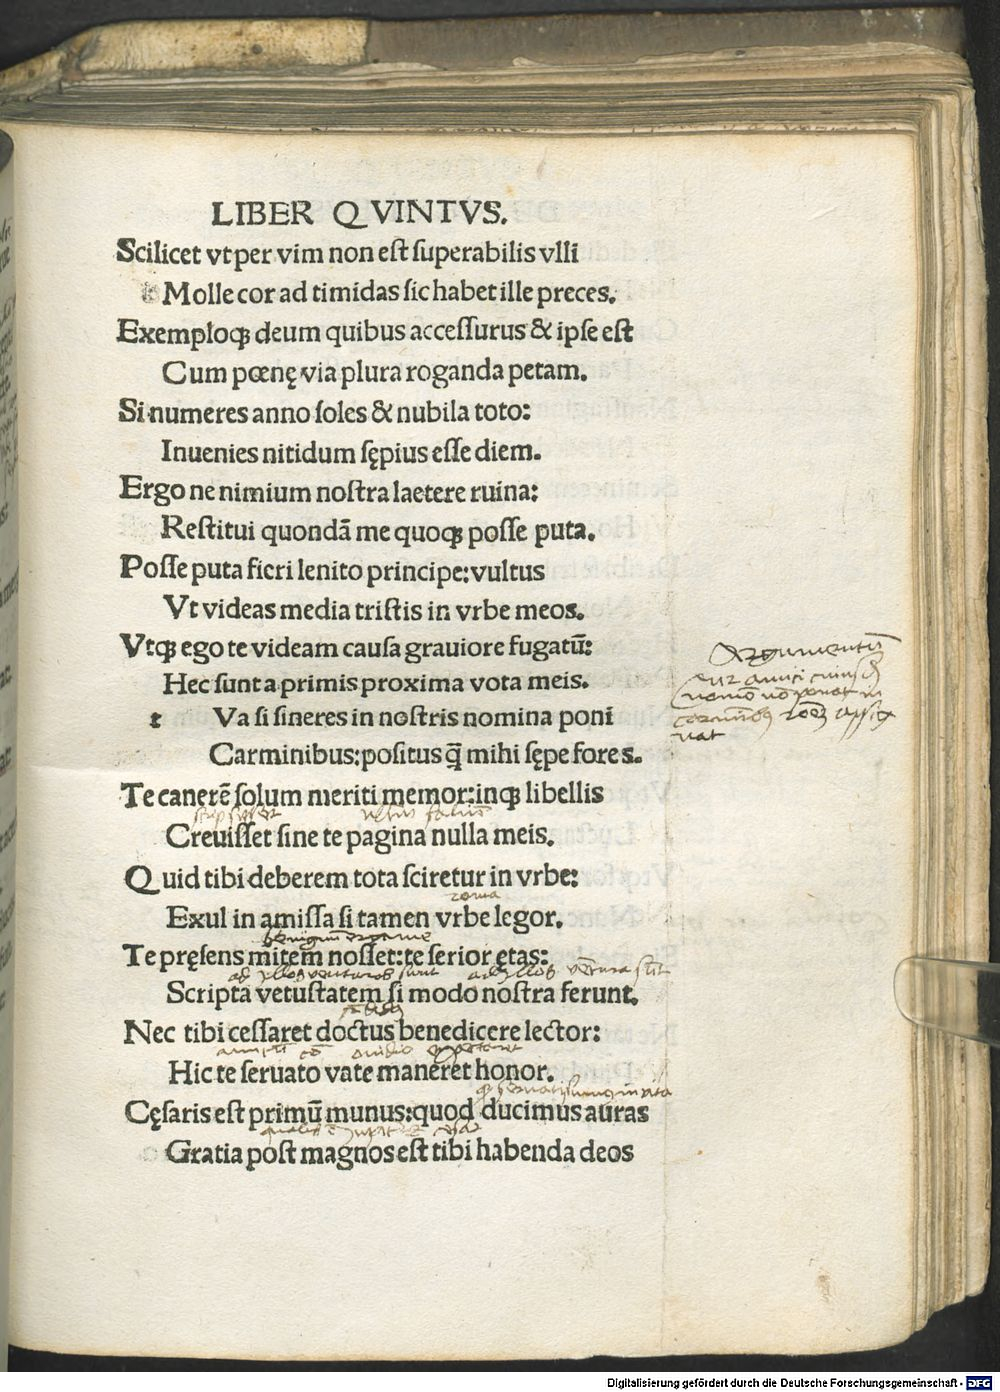 LIBER QVINTVS.
Scilicet vt per vim non est superabilis vlli
Molle cor ad timidas sic habet ille preces.
Exemploqꝫ deum quibus accessurus & ipse est
Cum pœnę via plura roganda petam.
Si numeres anno soles & nubila toto:
Inuenies nitidum sępius esse diem.
Ergo ne nimium nostra laetere ruina:
Restitui quondā me quoqꝫ posse puta.
Posse puta fieri lenito principe: vultus
Vt videas media tristis in vrbe meos.
Vtqꝫ ego te videam causa grauiore fugatū:
Hec sunt a primis proxima vota meis.
Argumentū
cur amici
t Va si sineres in nostris nomina poni
Carminibus: positus q̄ mihi sępe fores.
Te canerē solum meriti memor: inqꝫ libellis
Creuisset sine te pagina nulla meis.
Quid tibi deberem tota sciretur in vrbe:
roma
Exul in amissa si tamen vrbe legor.
Te pręsens mitem nosset: te serior ętas:
Scripta vetustatem si modo nostra ferunt.
Nec tibi cessaret doctus benedicere lector:
Hic te seruato vate maneret honor.
Cęsaris est primū munus: quod ducimus auras
Gratia post magnos est tibi habenda deos
Digitalisierung gefördert durch die Deutsche Forschungsgemeinschaft - DFG